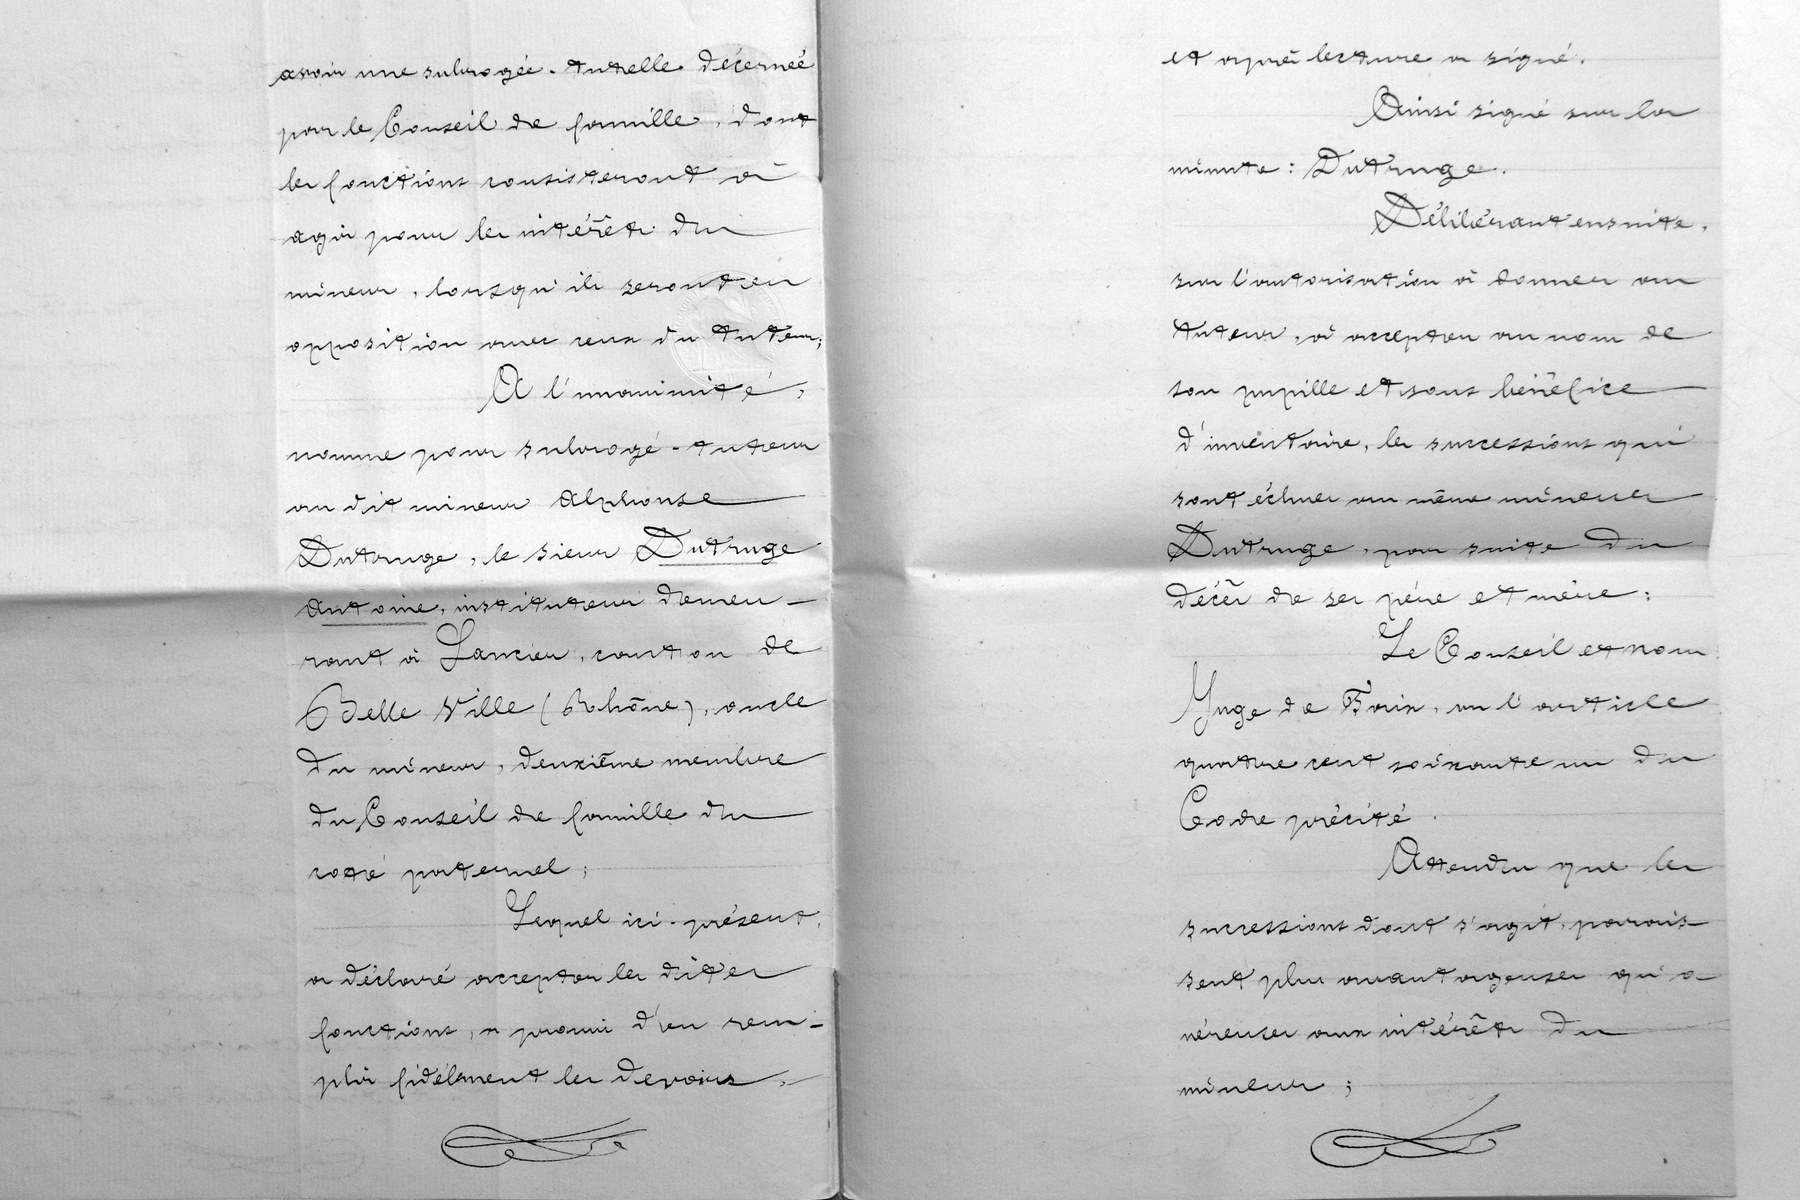 avoir une subrogée-tutelle décernée
par le Conseil de famille, dont
les fonctions consisteront à
agir pour les intérêts du
mineur, lorsqu'ils seront en
opposition avec ceux du tuteur;
A l'unanimité,
nomme pour subrogé-tuteur
au dit mineur Alphonse
Dutruge, le sieur Dutruge
Antoine, instituteur demeu-
rant à Lancié, canton de
Belle Ville (Rhône), oncle
du mineur, deuxième membre
du Conseil de famille du
coté paternel;
Lequel ici-présent,
a déclaré accepter les dites
fonctions, a promis d'en rem-
plir fidèlement les devoirs,
et après lecture a signé.
Ainsi signé sur la
minute: Dutruge.
Délibérant ensuite,
sur l'autorisation à donner au
tuteur, à accepter au nom de
son pupille et sous bénéfice
d'inventaire, les successions qui
sont échues au même mineur
Dutruge, par suite du
décès de ses père et mère;
Le Conseil et nous
Juge de Paix, vu l'article
quatre cent soixante un du
Code précité.
Attendu que les
successions dont s'agit, parais-
sent plus avantageuses qu'o-
néreuses aux intérêts du
mineur;